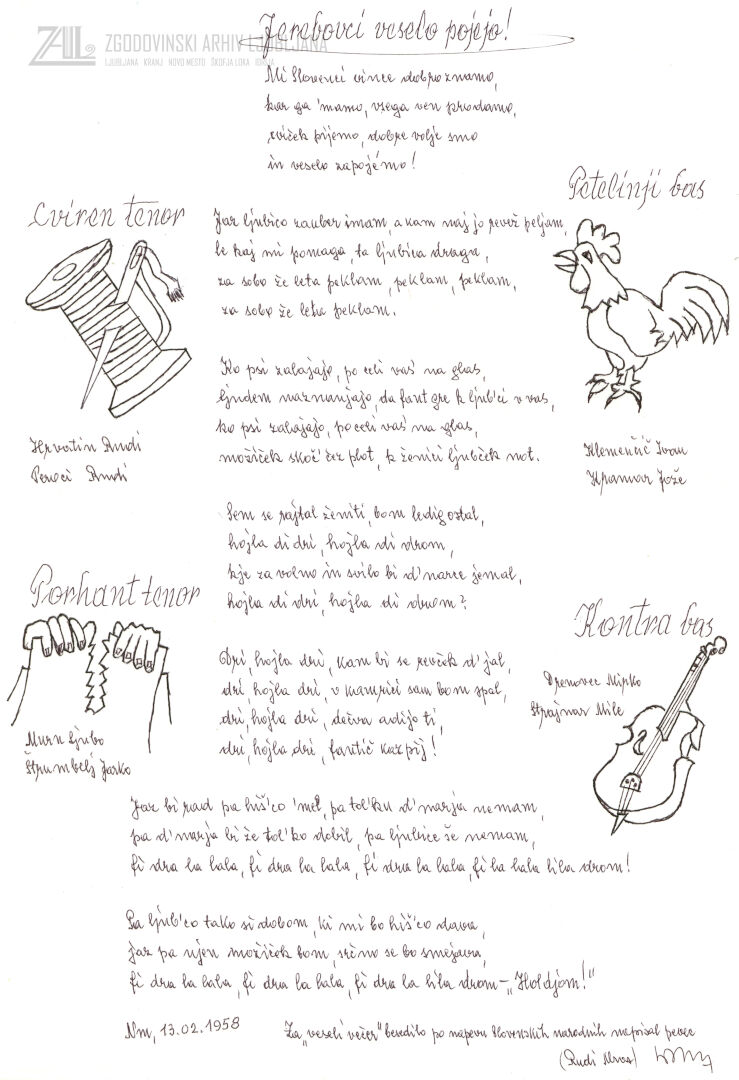 ZAL
ZGODOVINSKI ARHIV LJUBLJANA
LJUBLJANA KRANJ NOVO MESTO ŠKOFJA LOKA IDRIJA
Jerebovci veselo pojejo!
Mi Slovenci vince dobro znamo,
kar ga 'mamo, vsega ven prodamo,
cviček pijemo, dobre volje smo
in veselo zapojemo!
Cviren tenor
Hrvatin Rudi
Rudi
Petelinji bas
Klemenčič Ivan
Kramar Jože
Jaz ljubico zauber imam, a kam naj jo revež peljam,
le kaj mi pomaga, ta ljubica draga,
za sobo že leta peklam, peklam, peklam,
za sobo že leta peklam.
Ko psi zalajajo, po celi vas' na glas,
ljudem naznanjajo, da fant gre k ljub'ci v vas,
ko psi zalajajo, po celi vas' na glas,
možiček skoč' čez plot, k ženici ljubček not.
Sem se rajtal ženiti, bom ledig ostal,
hojla di dri, hojla di drom,
kje za volno in svilo bi d'narce jemal,
hojla di dri, hojla di drom?
Porhant tenor
Murn Ljubo
Štrumbelj Jarko
Kontra bas
Drenovec Mirko
Strajnar Mile
Dri, hojla dri, kam bi se revček d'jal,
dri, hojla dri, v kamrici sam bom spal,
dri, hojla dri, dečva adijo ti,
dri, hojla dri, fantič kar pij!
Jaz bi rad pa hiš'co 'mel, pa tol'ku d'narja nemam,
pa d'narja bi že tol'ko dobil, pa ljubice še nemam,
fi dra la lala, fi dra la lala, fi dra la lala, fi la lala lila drom!
Pa ljub'co tako si dobom, ki mi bo hiš'co dava,
jaz pa njen možiček bom, srčno se bo smejava,
fi dra la lala, fi dra la lala, fi dra la lila drom - „Holdjom!"
Nm, 13.02.1958
Za „veseli večer" besedilo po napevu Slovenskih narodnih napisal pevec
(Rudi Mraz)